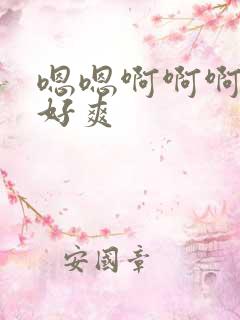 嗯嗯啊啊啊
好爽
安國章